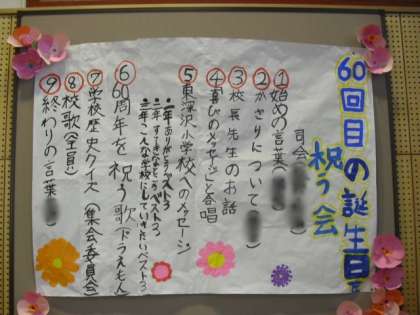 60回目の誕生日を
祝う会
司会
①始めの言葉（　）
②かざりについて（　）
③校長先生のお話
④喜びのメッセージと合唱
⑤東深沢小学校へのメッセージ
一年ありがとうベスト3
二年すてきなところベスト3
三年こんな学校にしていきたいベスト3
⑥60周年を祝う歌（ドラえもん）
⑦学校歴史クイズ（集会委員会）
⑧校歌（全員）
⑨終わりの言葉